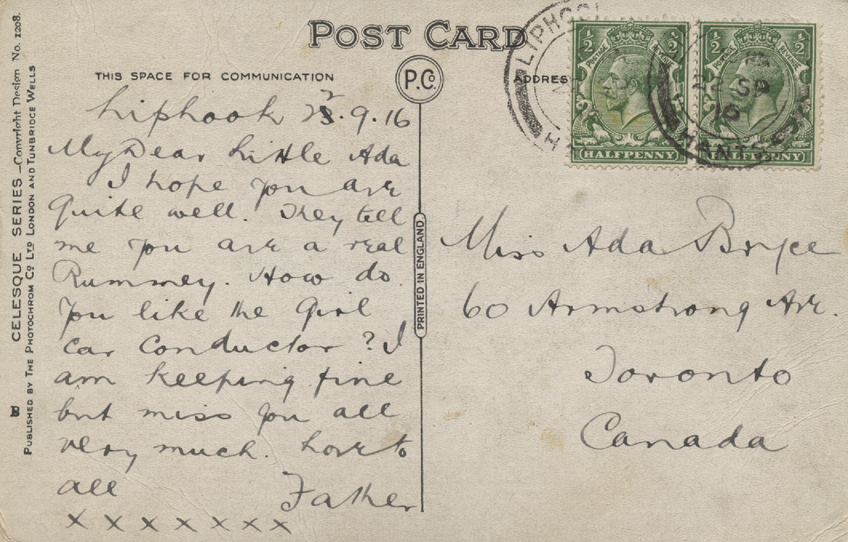 POST CARD
THIS SPACE FOR COMMUNICATION
P.Co.
ADDRES
Liphook 22.9.16
My Dear Little Ada
I hope you are
quite well. They tell
me you are a real
Rummey. How do
you like the Girl
Car Conductor? I
am keeping fine
but miss you all
very much. Love to
all Father
x x x x x x x
Miss Ada Bryce
60 Armstrong Ave.
Toronto
Canada
PRINTED IN ENGLAND
CELESQUE SERIES—Copyright Design No. 1208.
PUBLISHED BY THE PHOTOCHROM CO LTD LONDON AND TUNBRIDGE WELLS
B
1/2 1/2
HALFPENNY
1/2 1/2
HALFPENNY
LIPHOO
SP
16
HANTS